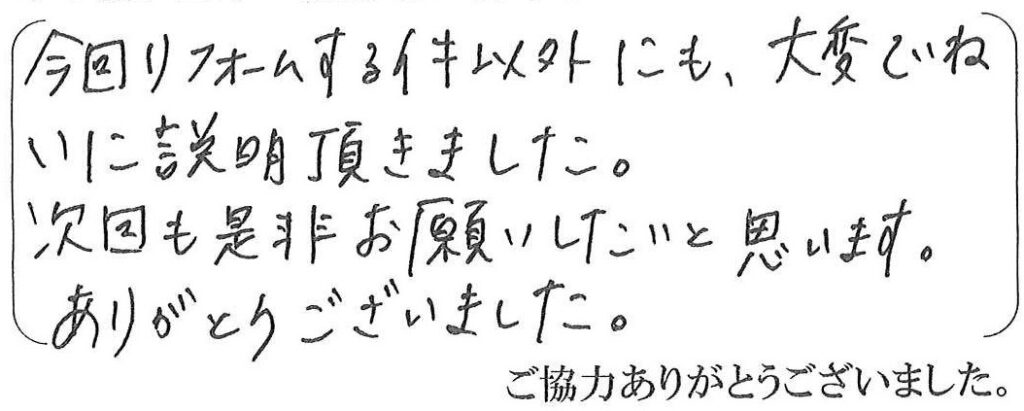 今回リフォームする件以外にも、大変でいね
いに説明頂きました。
次回も是非お願いしたいと思います。
ありがとうございました。
ご協力ありがとうございました。